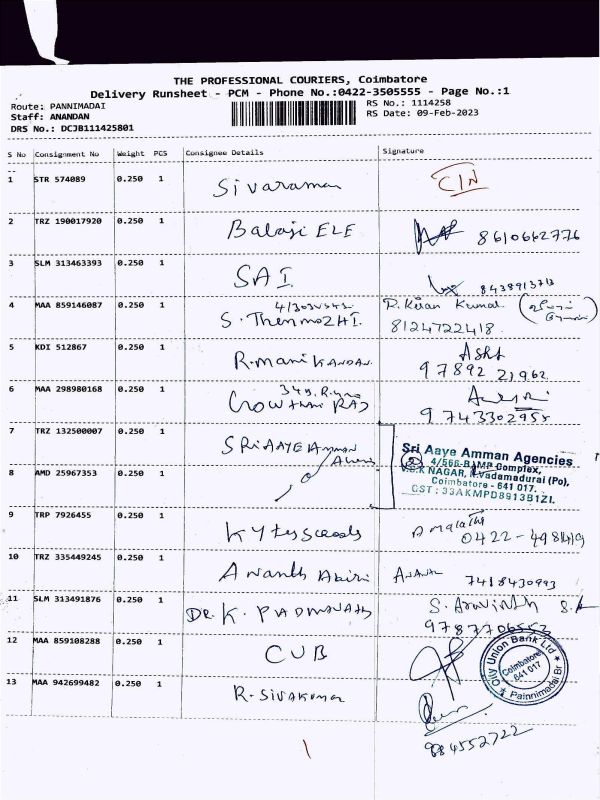 THE PROFESSIONAL COURIERS, Coimbatore
Delivery Runsheet - PCM - Phone No.:0422-3505555 - Page No.:1
Route: PANNIMADAI
RS No.: 1114258
Staff: ANANDAN
RS Date: 09-Feb-2023
DRS No.: DCJB111425801
S No Consignment No Weight PCS Consignee Details Signature
1 STR 574089 0.250 1 Sivaraman
2 TRZ 190017920 0.250 1 Balaji ELE 8610662776
3 SLM 313463393 0.250 1 SAI
4 MAA 859146087 0.250 1 S. ThenmoZHI. P. Kiran Kumar
8124722418.
5 KDI 512867 0.250 1 R. maniKANDAN.
97892 21962
6 MAA 298980168 0.250 1
9743302955
7 TRZ 132500007 0.250 1 SRi AAYE Amman
Sri Aaye Amman Agencies
4/566-B, AMP Complex,
V.S.K NAGAR, K.Vadamadurai (Po),
Coimbatore - 641 017.
GST : 33AKMPD8913B1ZI.
8 AMD 25967353 0.250 1
9 TRP 7926455 0.250 1 Amalathi
10 TRZ 335449245 0.250 1 Ananth 7418430993
11 SLM 313491876 0.250 1 DR. K. PADMANABH S. Arvinth
9787706552
12 MAA 859108288 0.250 1 CUB
City Union Bank Ltd
Coimbatore
641 017
Pannimadai Br
13 MAA 942699482 0.250 1 R. Sivakumar
984552722